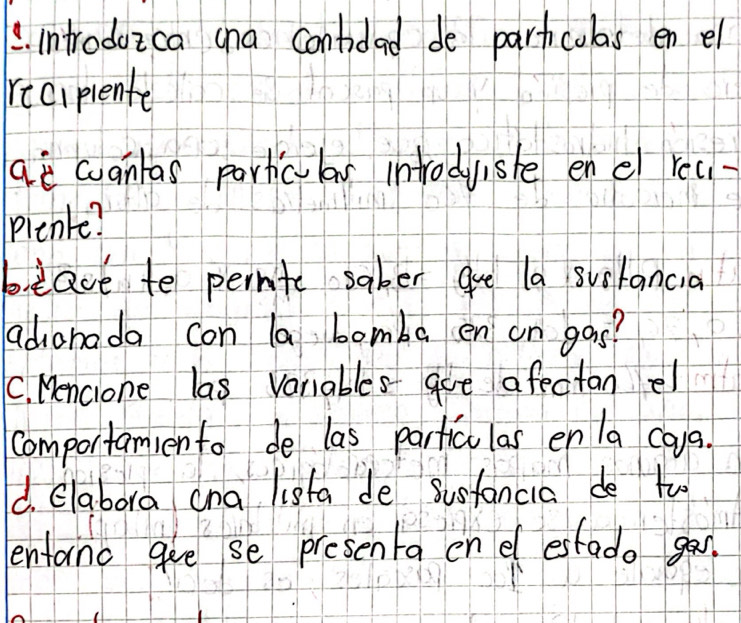 1. introduzca una cantidad de particulas en el
recipiente
a. ¿cuántas partículas introdujiste en el reci-
piente?
b. ¿Qué te permite saber que la sustancia
adicionada con la bomba en un gas?
C. Mencione las variables que afectan el
comportamiento de las partículas en la caja.
d. Elabora una lista de sustancia de tu
entorno que se presenta en el estado gas.